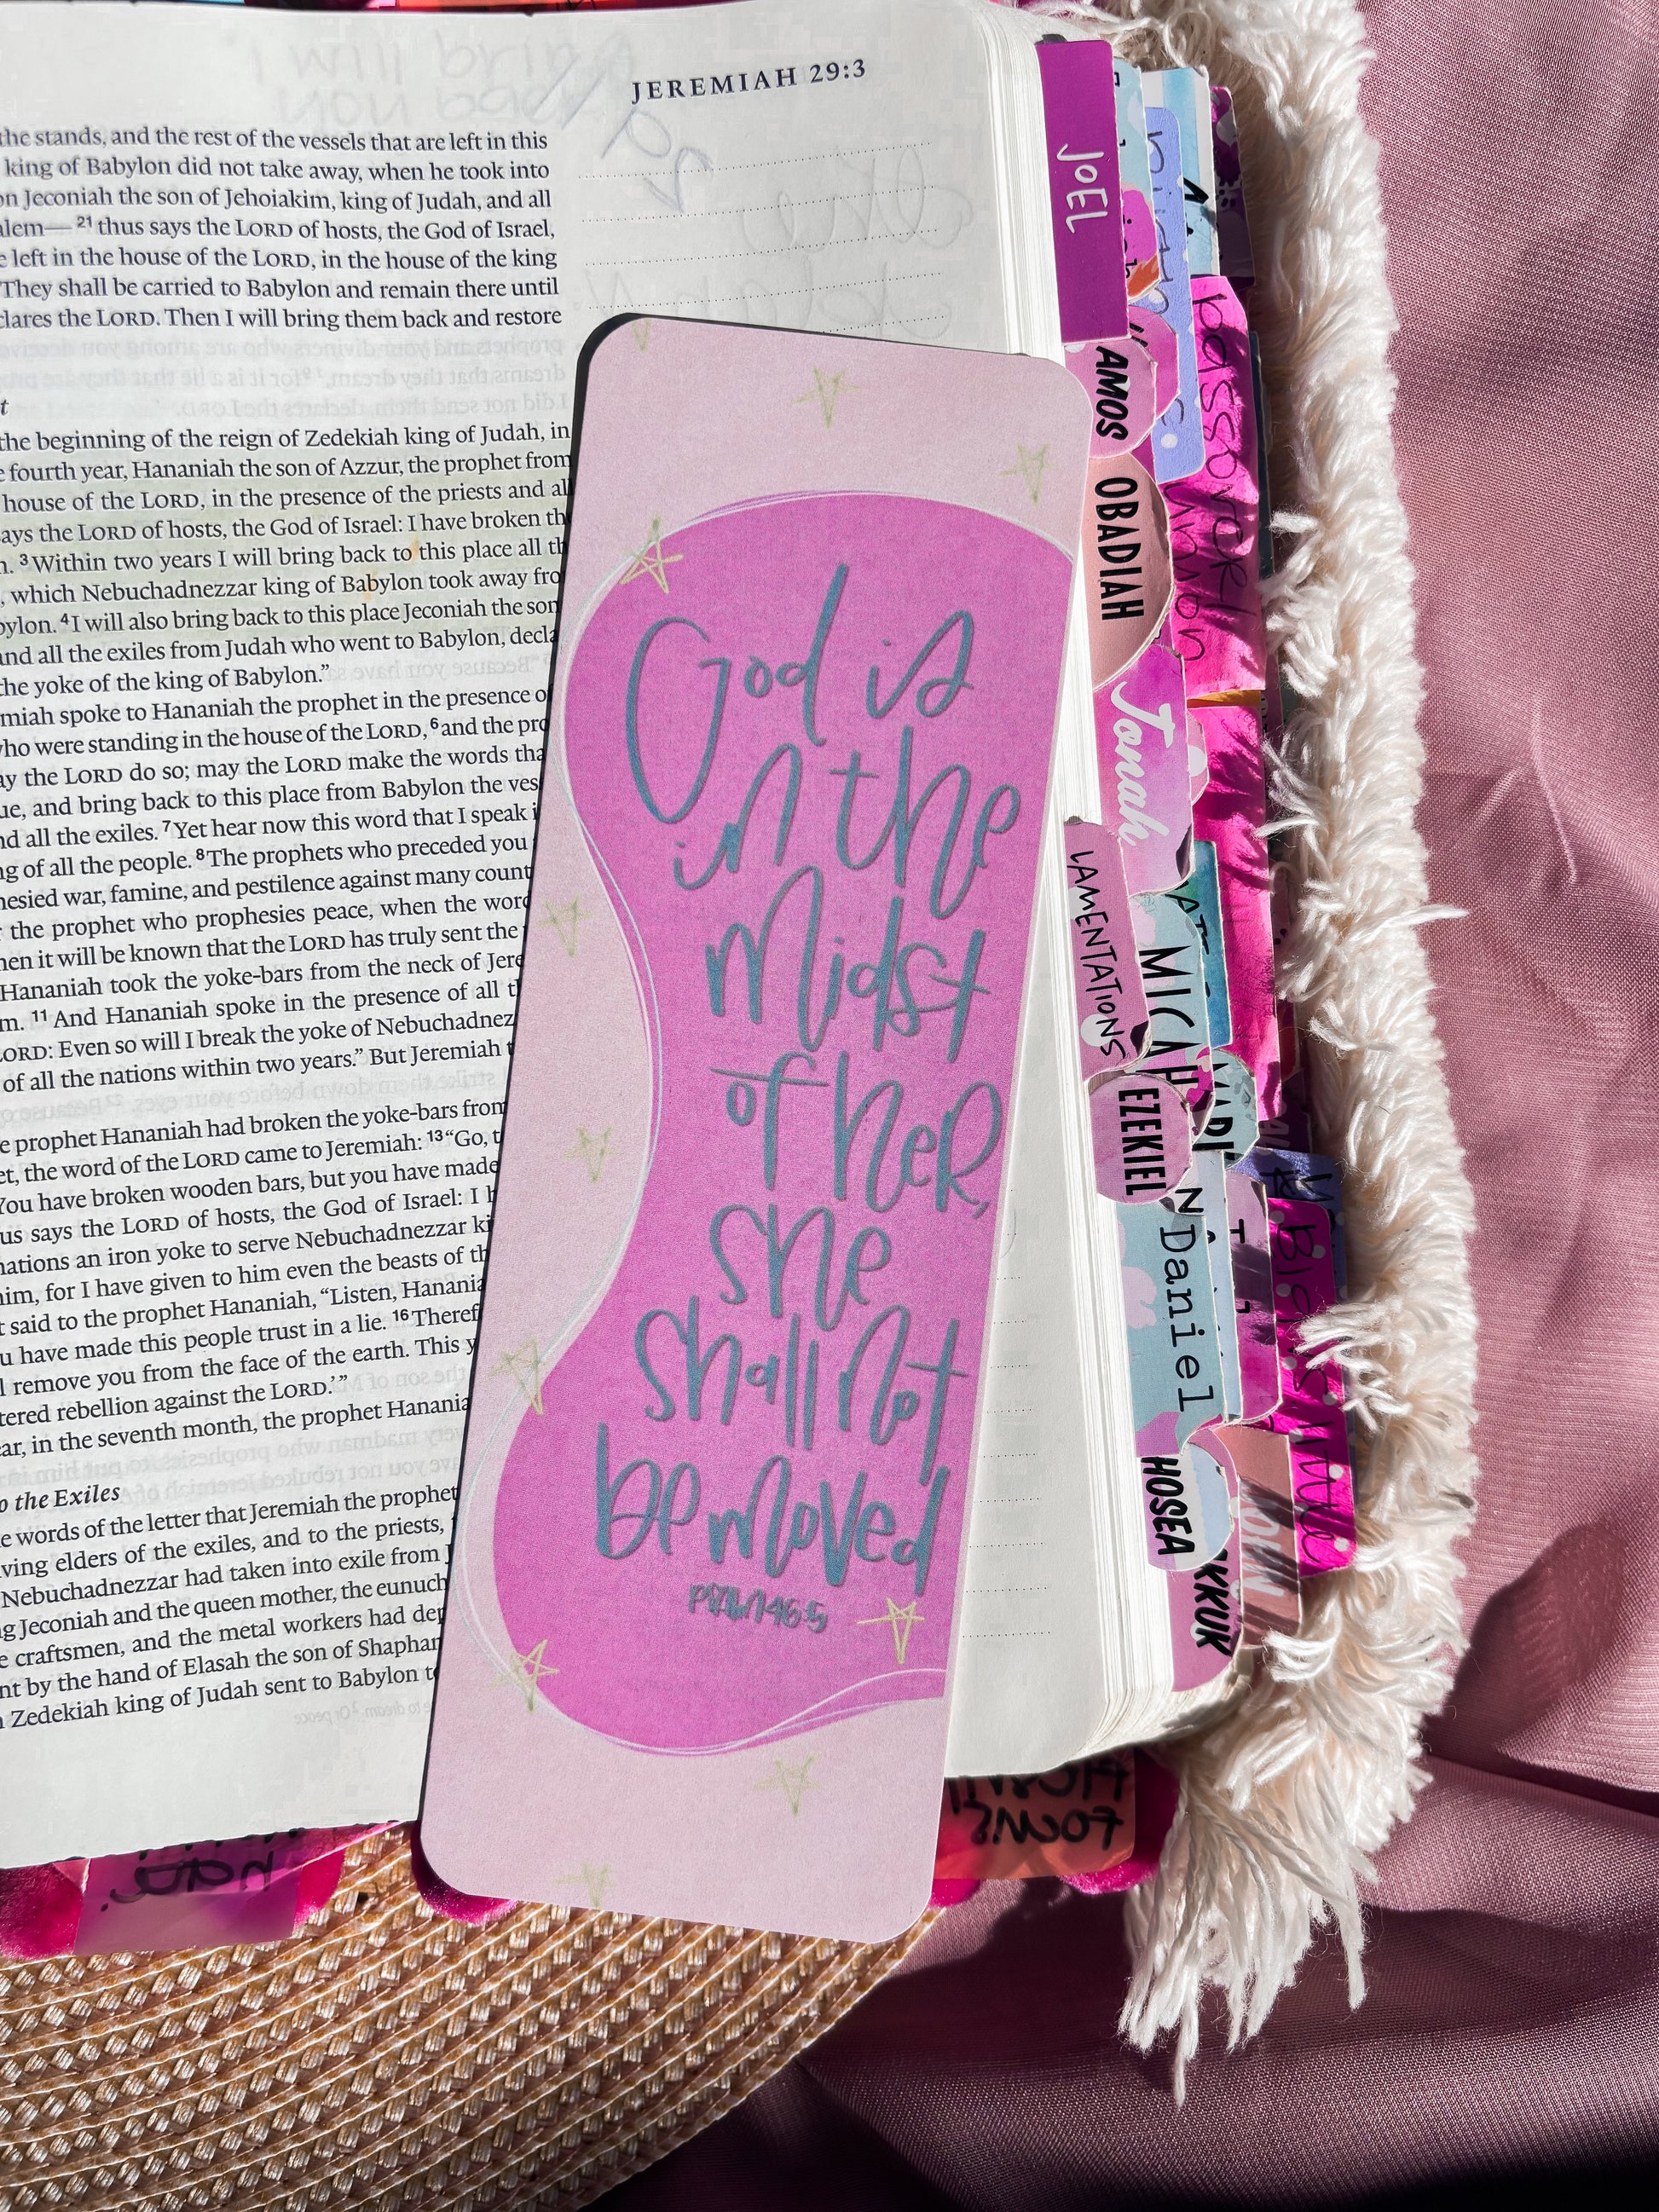 JEREMIAH 29:3
the stands, and the rest of the vessels that are left in this
king of Babylon did not take away, when he took into
on Jeconiah the son of Jehoiakim, king of Judah, and all
alem— 21 thus says the LORD of hosts, the God of Israel,
left in the house of the LORD, in the house of the king
They shall be carried to Babylon and remain there until
clares the LORD. Then I will bring them back and restore
the beginning of the reign of Zedekiah king of Judah, in
fourth year, Hananiah the son of Azzur, the prophet from
house of the LORD, in the presence of the priests and all
says the LORD of hosts, the God of Israel: I have broken th
n. 3 Within two years I will bring back to this place all th
, which Nebuchadnezzar king of Babylon took away fro
bylon. 4 I will also bring back to this place Jeconiah the son
and all the exiles from Judah who went to Babylon, decla
the yoke of the king of Babylon.”
miah spoke to Hananiah the prophet in the presence o
who were standing in the house of the LORD, 6 and the pro
ay the LORD do so; may the LORD make the words tha
ue, and bring back to this place from Babylon the ves
nd all the exiles. 7 Yet hear now this word that I speak i
ng of all the people. 8 The prophets who preceded you
hesied war, famine, and pestilence against many count
the prophet who prophesies peace, when the word
hen it will be known that the LORD has truly sent the
Hananiah took the yoke-bars from the neck of Jere
m. 11 And Hananiah spoke in the presence of all th
LORD: Even so will I break the yoke of Nebuchadnez
of all the nations within two years.” But Jeremiah
e prophet Hananiah had broken the yoke-bars from
et, the word of the LORD came to Jeremiah: 13 “Go, t
You have broken wooden bars, but you have made
us says the LORD of hosts, the God of Israel: I h
nations an iron yoke to serve Nebuchadnezzar ki
him, for I have given to him even the beasts of th
t said to the prophet Hananiah, “Listen, Hanania
u have made this people trust in a lie. 16 Theref
l remove you from the face of the earth. This y
tered rebellion against the LORD.’”
ear, in the seventh month, the prophet Hanania
o the Exiles
e words of the letter that Jeremiah the prophet
iving elders of the exiles, and to the priests,
Nebuchadnezzar had taken into exile from J
ng Jeconiah and the queen mother, the eunuch
e craftsmen, and the metal workers had dep
nt by the hand of Elasah the son of Shaphan
Zedekiah king of Judah sent to Babylon to
God is
in the
Midst
of her,
she
shall not
be moved
PSALM 46:5
JOEL
AMOS
OBADIAH
Jonah
LAMENTATIONS
MICAH
EZEKIEL
Daniel
HOSEA
KKUK
passover